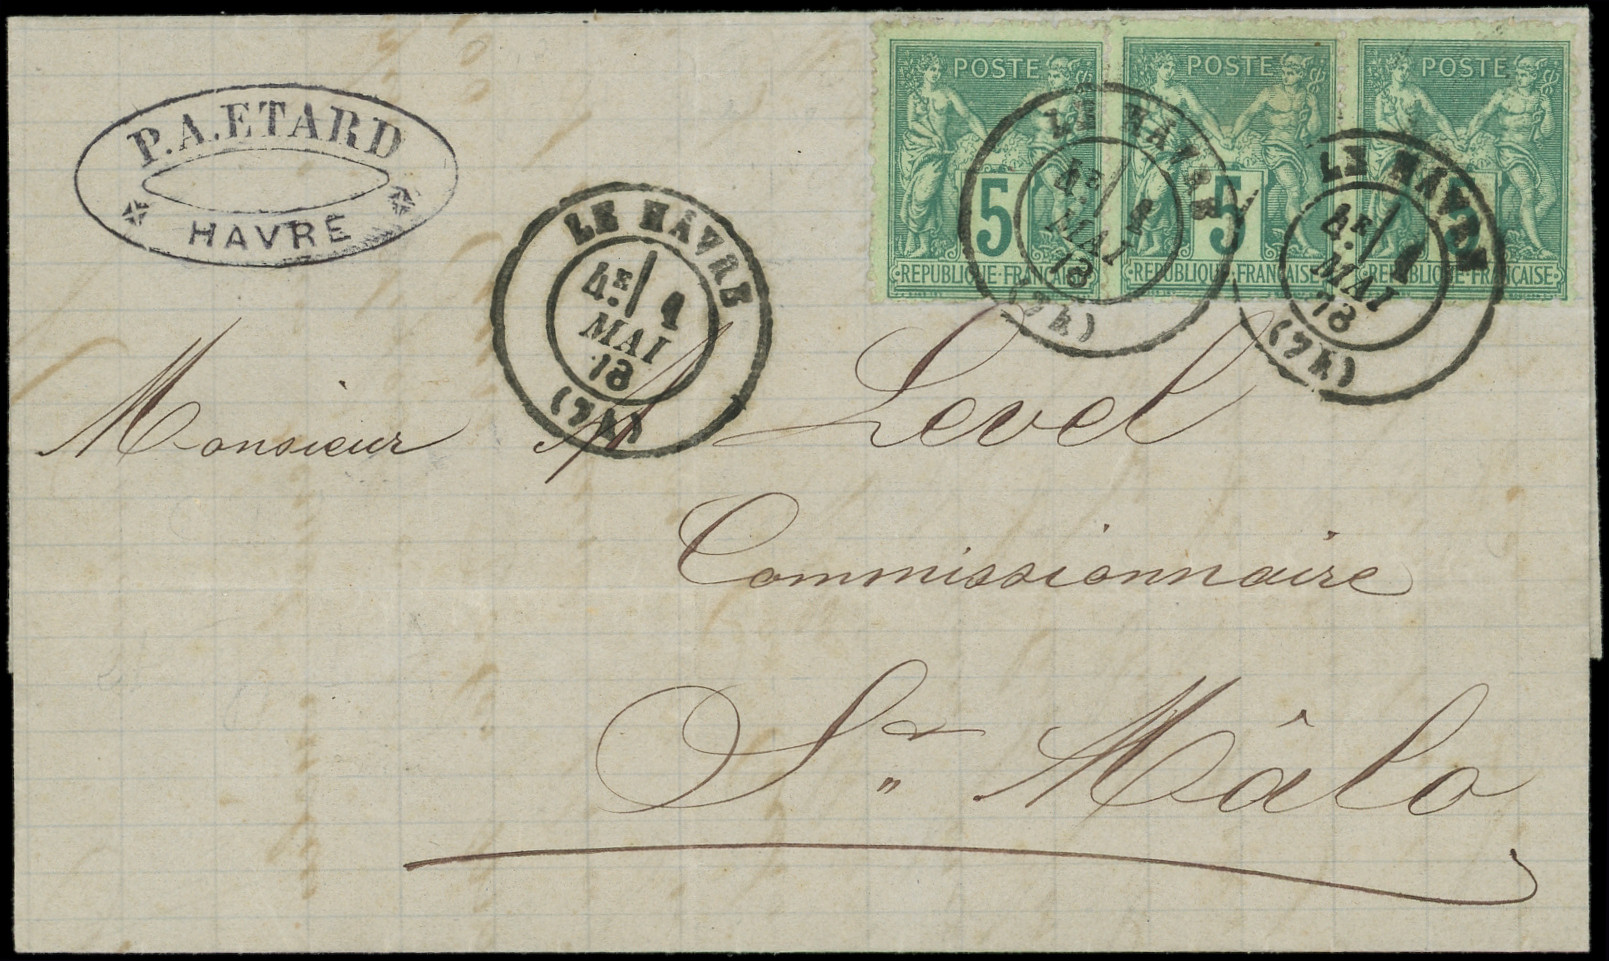 P.A.ETARD
HAVRE
POSTE
5
REPUBLIQUE·FRANÇAISE
POSTE
5
REPUBLIQUE·FRANÇAISE
POSTE
5
REPUBLIQUE·FRANÇAISE
LE HÂVRE
4E/ 1
MAI
78
(74)
LE HÂVRE
4E/ 1
MAI
78
(74)
LE HÂVRE
4E/ 1
MAI
78
(74)
Monsieur M Level
Commissionnaire
St Mâlo